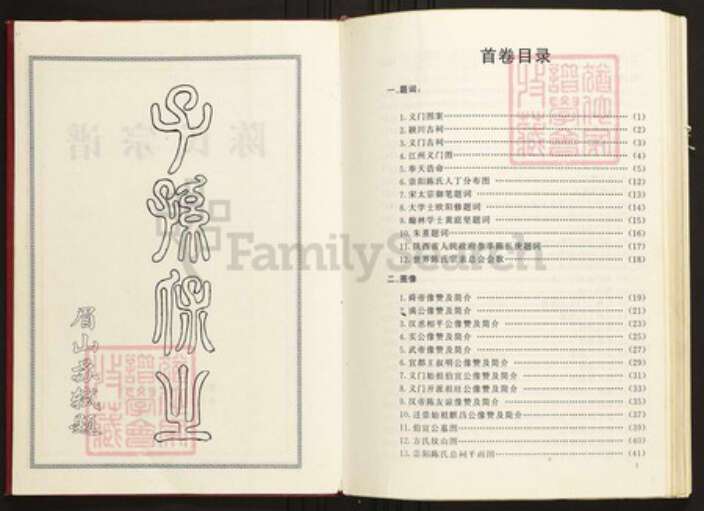 子孫保之
眉山苏轼题
陈氏宗谱
FamilySearch
首卷目录
一.题词:
1.义门图案………(1)
2.颍川古祠………(2)
3.义门古祠………(3)
4.江州义门图………(4)
5.奉天诰命………(5)
6.崇阳陈氏人丁分布图………(12)
7.宋太宗御笔题词………(13)
8.大学士欧阳修题词………(14)
9.翰林学士黄庭坚题词………(15)
10.朱熹题词………(16)
11.陕西省人民政府参事陈长庚题词………(17)
12.世界陈氏宗亲总会会歌………(18)
二.图像
1.舜帝像赞及简介………(19)
2.满公像赞及简介………(21)
3.汉丞相平公像赞及简介………(23)
4.实公像赞及简介………(25)
5.武帝像赞及简介………(27)
6.宜都王叔明公像赞及简介………(29)
7.义门始祖伯宣公像赞及简介………(31)
8.义门开派祖旺公像赞及简介………(33)
9.汉帝陈友谅像赞及简介………(35)
10.迁崇始祖 公像赞及简介………(37)
11.伯宣公墓图………(39)
12.方氏坟山图………(40)
13.崇阳陈氏总祠平面图………(41)
1